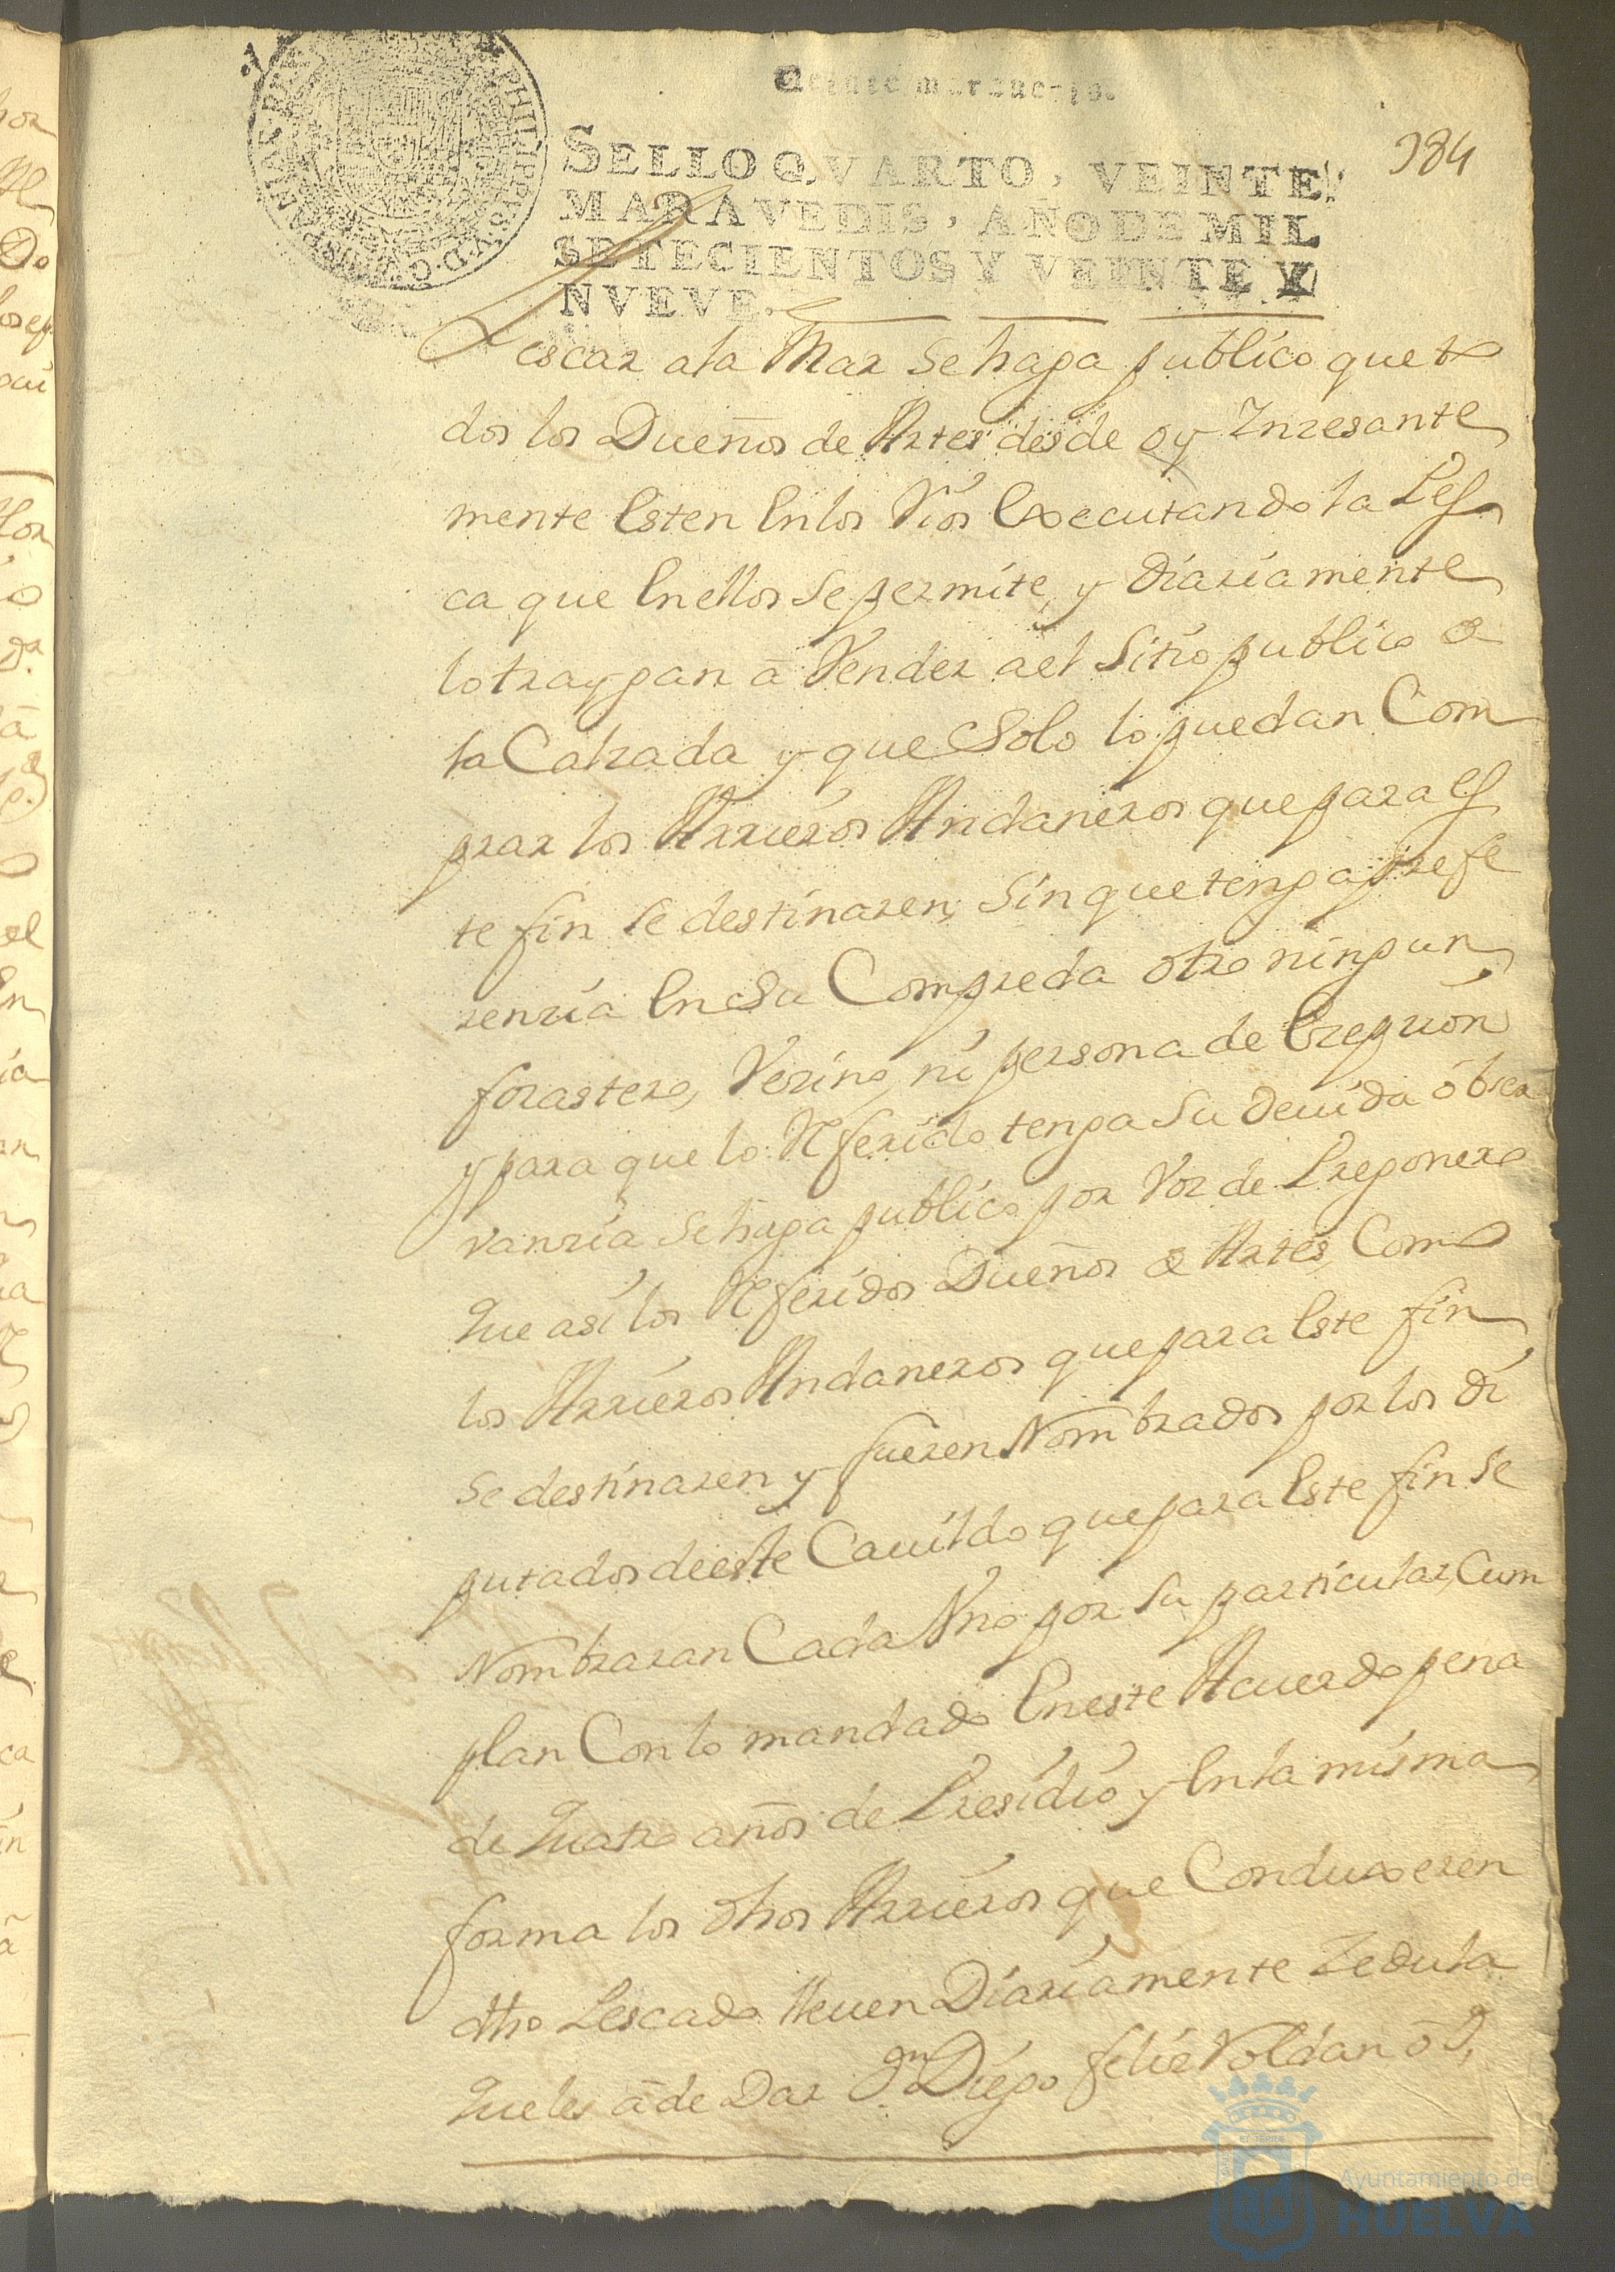 Veinte maravedis.
384
SELLO QVARTO, VEINTE
MARAVEDIS, AÑO DE MIL
SETECIENTOS Y VEINTE Y
NVEVE.
Pescar ala Mar se haga publico que to
dos los Dueños de Artes desde oy Inzesante
mente Esten En los Rios Executando la Pes
ca que En ellos se permite, y Diariamente
lo traygan à Vender a el Sitio publico de
la Calzada y que Solo lo puedan Com
prar los Arrieros Andaneros que para es
te fin se destinaren, sin que tenga prefe
renzia En Su Compreda otro ningun
forastero, Vezino, ni persona de Ezepzion
y para que lo Referido tenga su devida obser
vanzia se haga publico por Voz de Pregonero
que asi los Referidos Dueños de Artes, Como
los Arrieros Andaneros que para Este fin
se destinaren y fueren Nombrados por los Di
putados de este Cavildo que para Este fin se
Nombraran Cada Uno por su particular, Cum
plan Con lo mandado En este Acuerdo pena
de quatro años de Presidio y En la misma
forma los otros Arrieros que Conduxeren
dho Pescado lleven Diariamente Zedula
que les à de Dar Dn Diego feliz Roldan ò D,
Ayuntamiento de
HUELVA